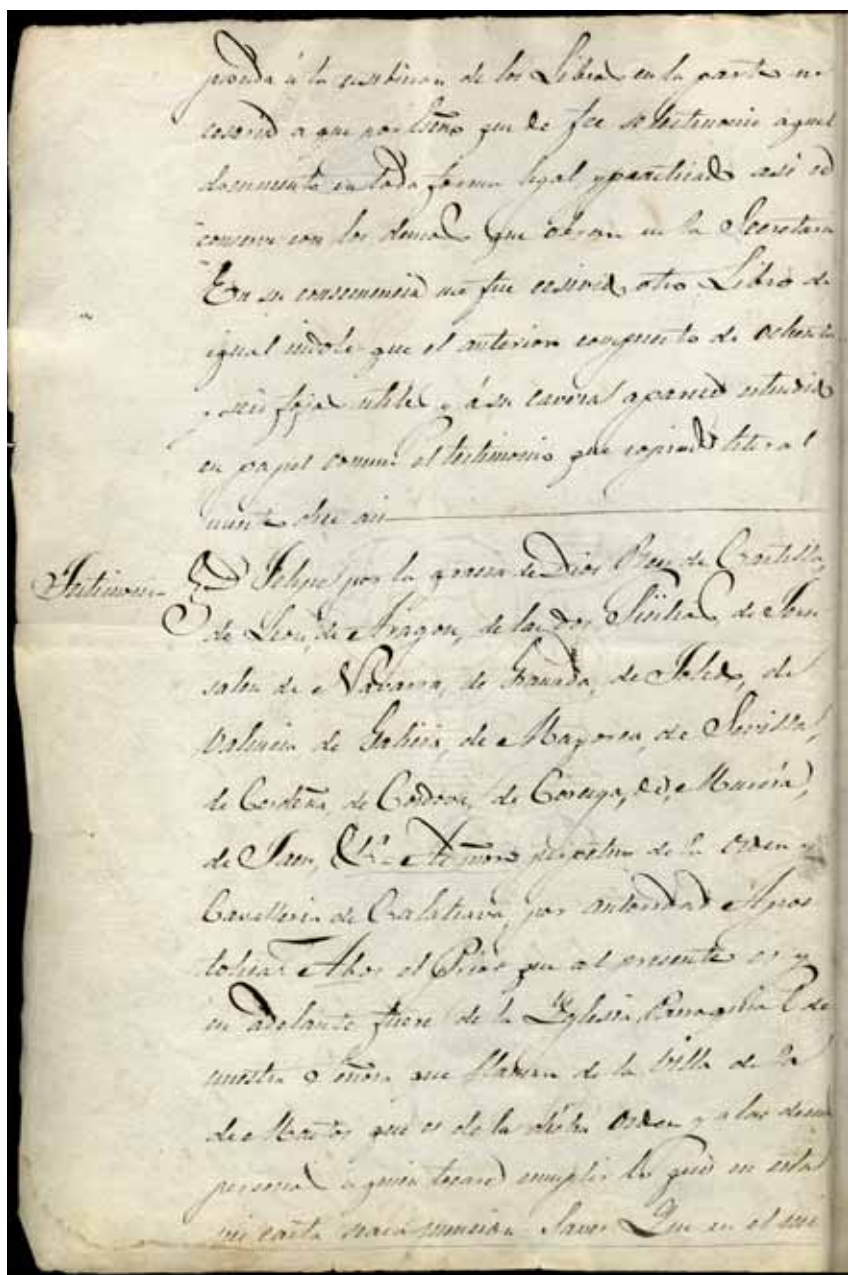 ponda á la exsibicion de los Libros en la parte ne
cesaria a que por Esno que de fee se testimonie aquel
documento en toda forma legal y practicado así se
conserve con los demas que obran en la Secretaria
En su consecuencia me fue exsivido otro Libro de
igual indole que el anterior compuesto de ochenta
y seis fojas utiles y á su caveza aparece estendido
en papel comun el testimonio que copiado literal
mente dice asi
Testimonio
D Felipe por la gracia de Dios Rey de Castilla,
de Leon, de Aragon, de las dos Sicilias, de Jeru
salen de Navarra, de Granada, de Toledo, de
Valencia de Galicia, de Mayorca, de Sevilla,
de Cerdeña, de Cordova, de Corcega, de Murcia,
de Jaen, &a Administrador perpetuo de la Orden y
Cavalleria de Calatrava, por autoridad Apos
tolica A bos el Prior que al presente es y
en adelante fuere de la Yglesia Parroquial de
nuestra Señora que llaman de la Villa de la
de Martos que es de la dicha Orden y a las demas
personas a quien tocare cumplir lo que en esta
mi carta seara mencion Saved Que en el